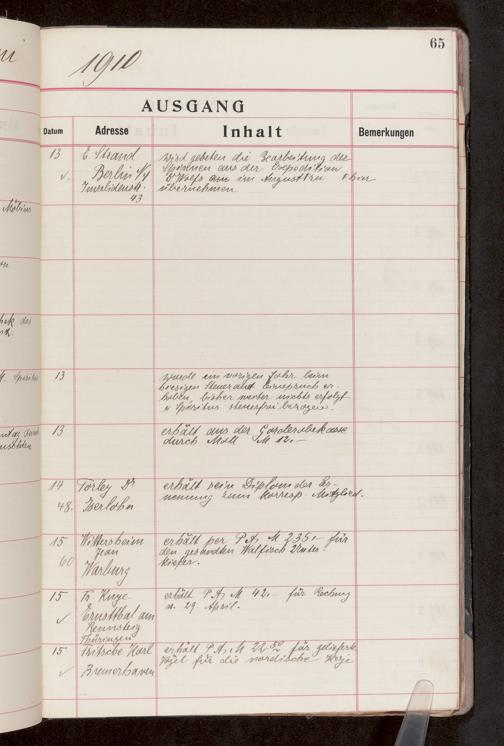 65
1910
AUSGANG
Datum Adresse Inhalt Bemerkungen
13 E. Strand wird gebeten die Bearbeitung der
✓ Berlin Spinnen aus der Expedition
Invalidenstr. Dr Wolfs im August
43 übernehmen
13 wurde im vorigen Jahr beim
hiesigen Steueramt Einspruch er-
hoben, bisher weiter nichts erfolgt
Spiritus steuerfrei bezogen.
13 erhält aus der
durch Moll M 12.-
14 Torley Dr erhält sein Diplom der Er-
48. Iserlohn nennung zum korresp. Mitglied.
15 erhält per P.A. M 235.- für
60 Jean den gesandten Walfisch Unter-
Warburg kiefer.
15 Fr. erhält P.A. M 42.- für Rechnung
✓ Ernstthal am v. 29 April.
Rennsteig
Thüringen
15 Fritsche Karl erhält P.A. M 22.50 für gelieferte
✓ Bremerhaven für die nordische